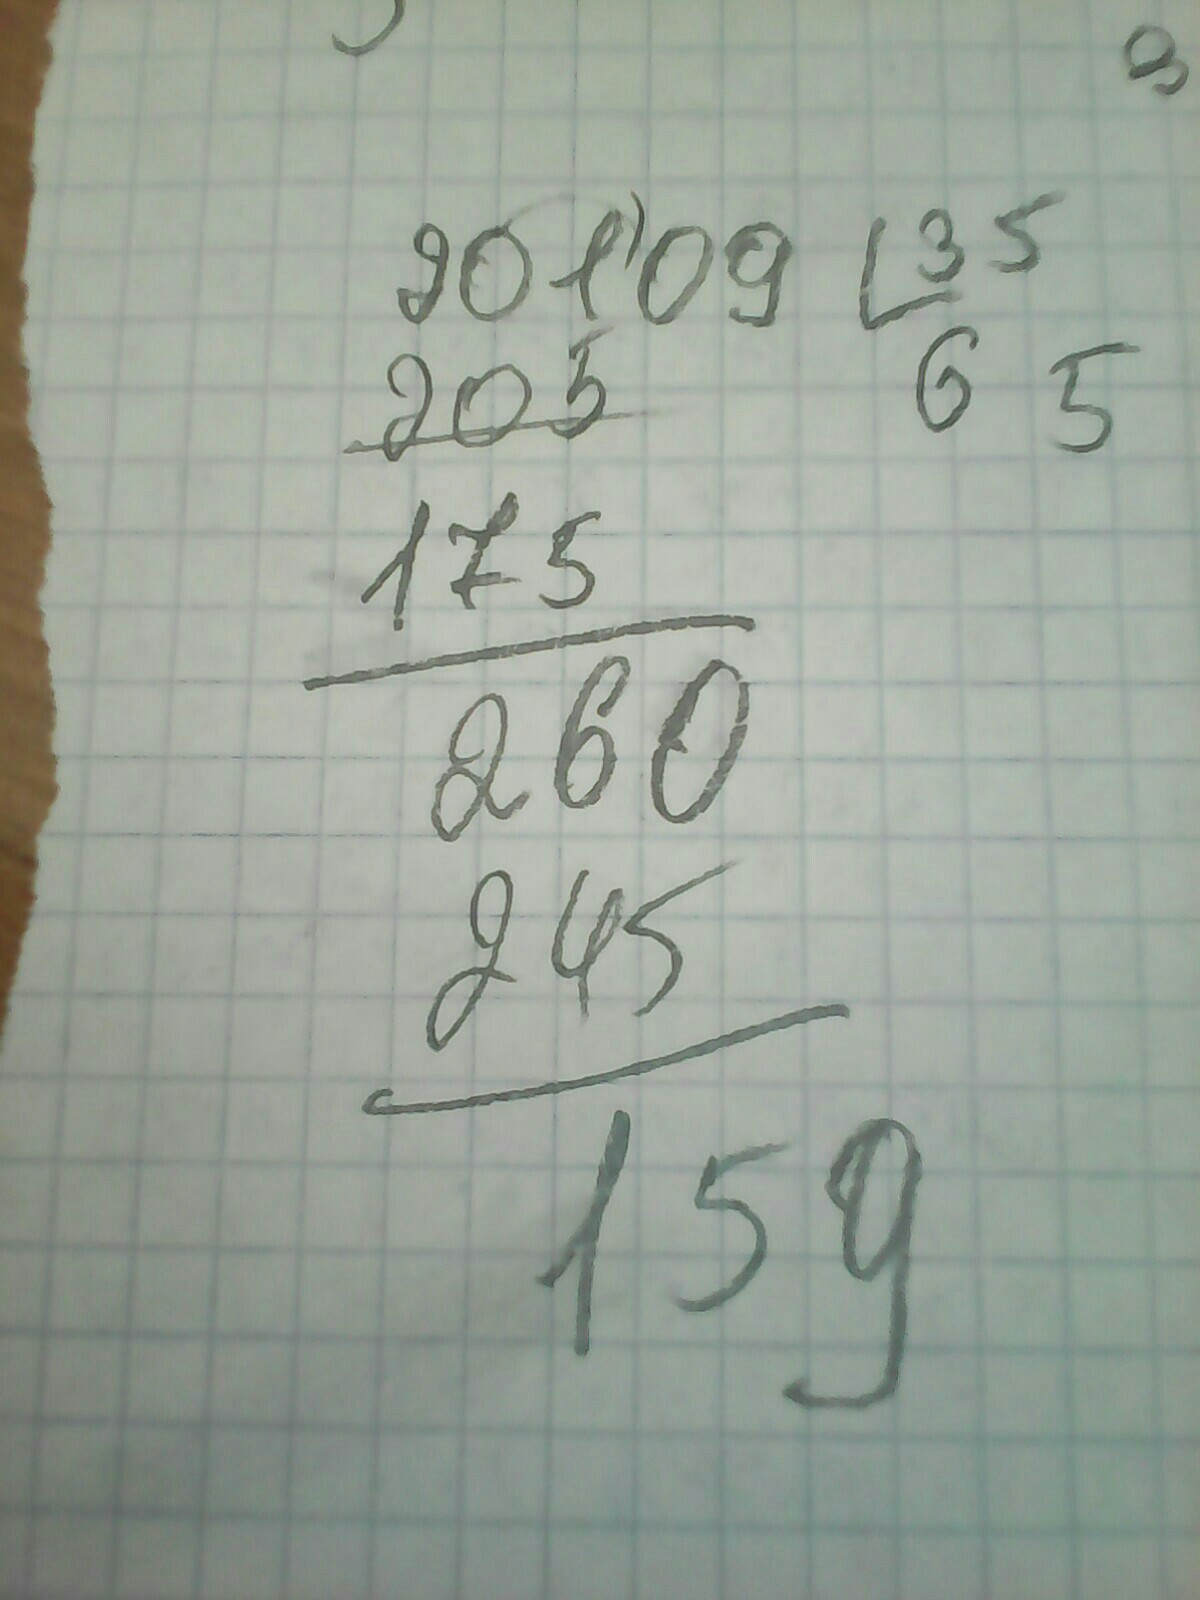 20109 35
205 6 5
175
260
245
159